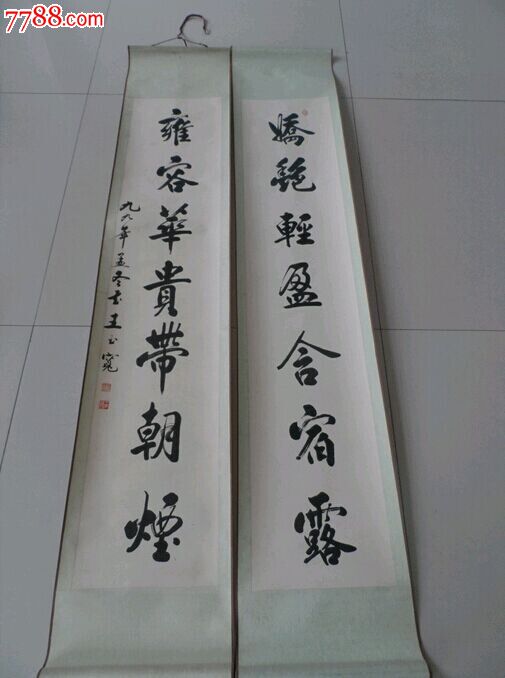 7788.com
嬌艶輕盈含宿露
雍容華貴帶朝煙
九八年孟冬書王玉寬